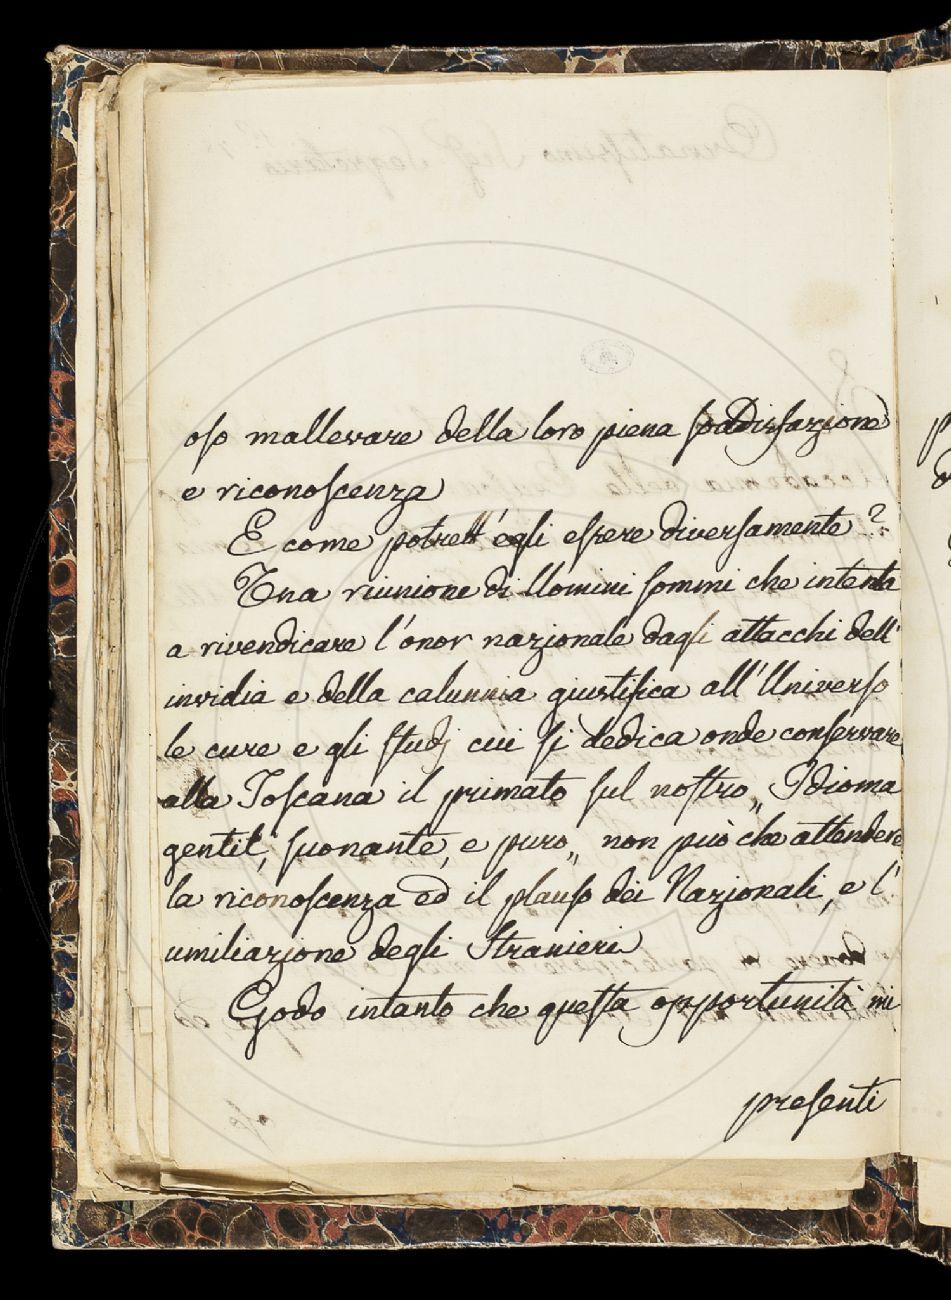 oso mallevare della loro piena sodisfazione
e riconoscenza
E come potrebb'egli essere diversamente?
Una riunione di Uomini sommi che intenta
a rivendicare l'onor nazionale dagli attacchi dell'
invidia e della calunnia giustifica all'Universo
le cure e gli studj cui si dedica onde conservare
alla Toscana il primato sul nostro „ Idioma
gentil, suonante, e puro „ non può che attendere
la riconoscenza ed il plauso dei Nazionali, e l'
umiliazione degli Stranieri
Godo intanto che questa opportunità mi
presenti